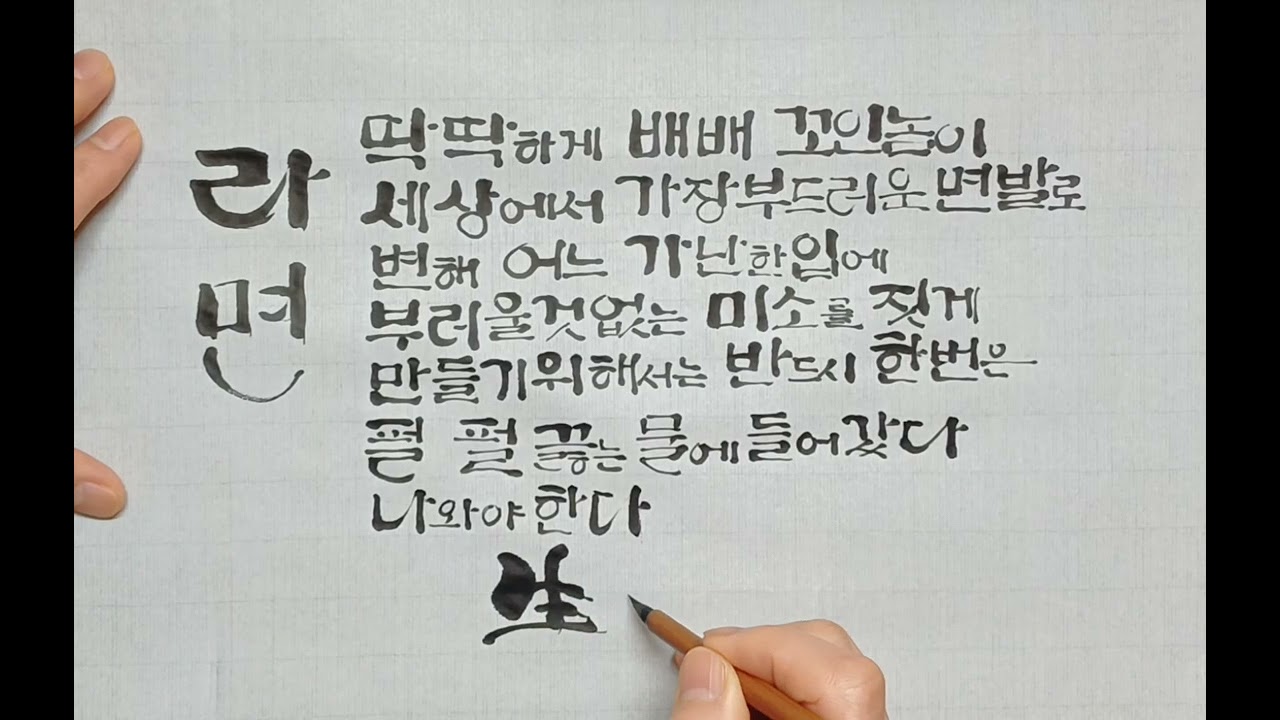 라면
딱딱하게 배배 꼬인놈이
세상에서 가장부드러운 면발로
변해 어느 가난한입에
부러울것없는 미소를 짓게
만들기위해서는 반드시 한번은
펄 펄 끓는 물에 들어갔다
나와야 한다